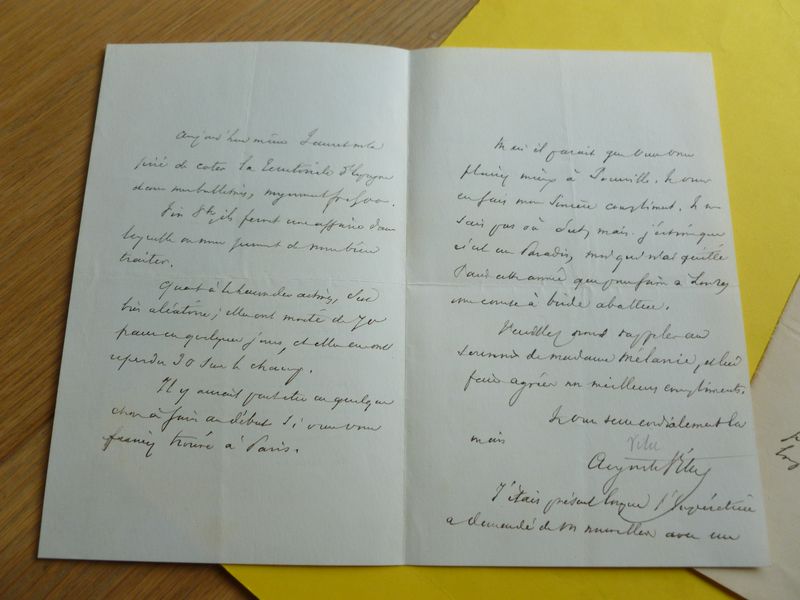 aujourd'hui même
prié de coter la Territoriale d'Espagne
dans nos bulletins, moyennant
Fin 8bre ils feront une affaire dans
laquelle on nous promet de nous bien
traiter.
Quant à la hausse des actions, elle est
bien aléatoire; elles ont monté de 70
francs en quelques jours, et elles en ont
reperdu 30 sur le champ.
Il y aurait peut-être eu quelque
chose à faire au début si vous vous
fussiez trouvé à Paris.
Mais il paraît que vous vous
plaisez mieux à Je vous
en fais mon sincère compliment. Je ne
sais pas où c'est, mais j'estime que
c'est un Paradis, moi qui n'ai quitté
Paris cette année que pour faire à Londres
une course à bride abattue.
Veuillez nous rappeler au
souvenir de madame Mélanie, et lui
faire agréer nos meilleurs compliments.
Je vous serre cordialement la
main
Vitu
Auguste Vitu
J'étais présent lorsque l'Impératrice
a demandé de vos nouvelles avec une